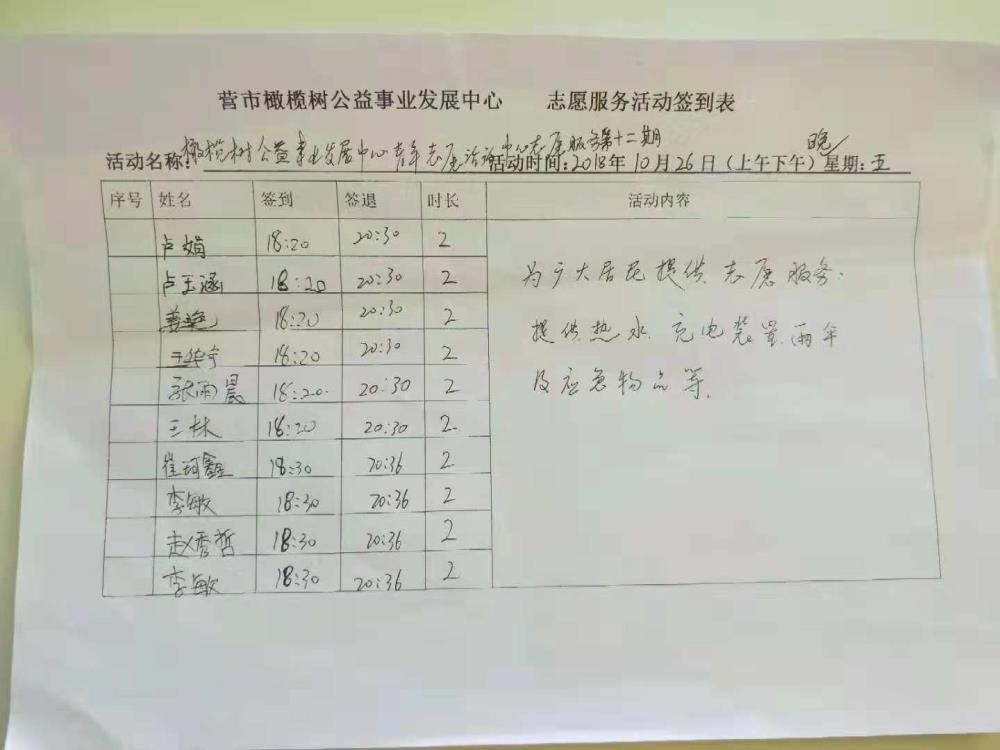 营市橄榄树公益事业发展中心 志愿服务活动签到表
活动名称:橄榄树公益事业发展中心青年志愿活动中心志愿服务第十二期 活动时间:2018年10月26日(上午下午)晚/星期:五
序号 姓名 签到 签退 时长 活动内容
卢娟 18:20 20:30 2
卢玉涵 18:20 20:30 2
姜艳 18:20 20:30 2
王华宁 18:20 20:30 2
张雨晨 18:20. 20:30 2
王林 18:20 20:30 2.
崔珂鑫 18:30 20:36 2.
李敏 18:30 20:36 2
赵秀哲 18:30 20:36 2
李敏 18:30 20:36 2
为广大居民提供志愿服务:
提供热水、充电装置、雨伞
及应急物品等.